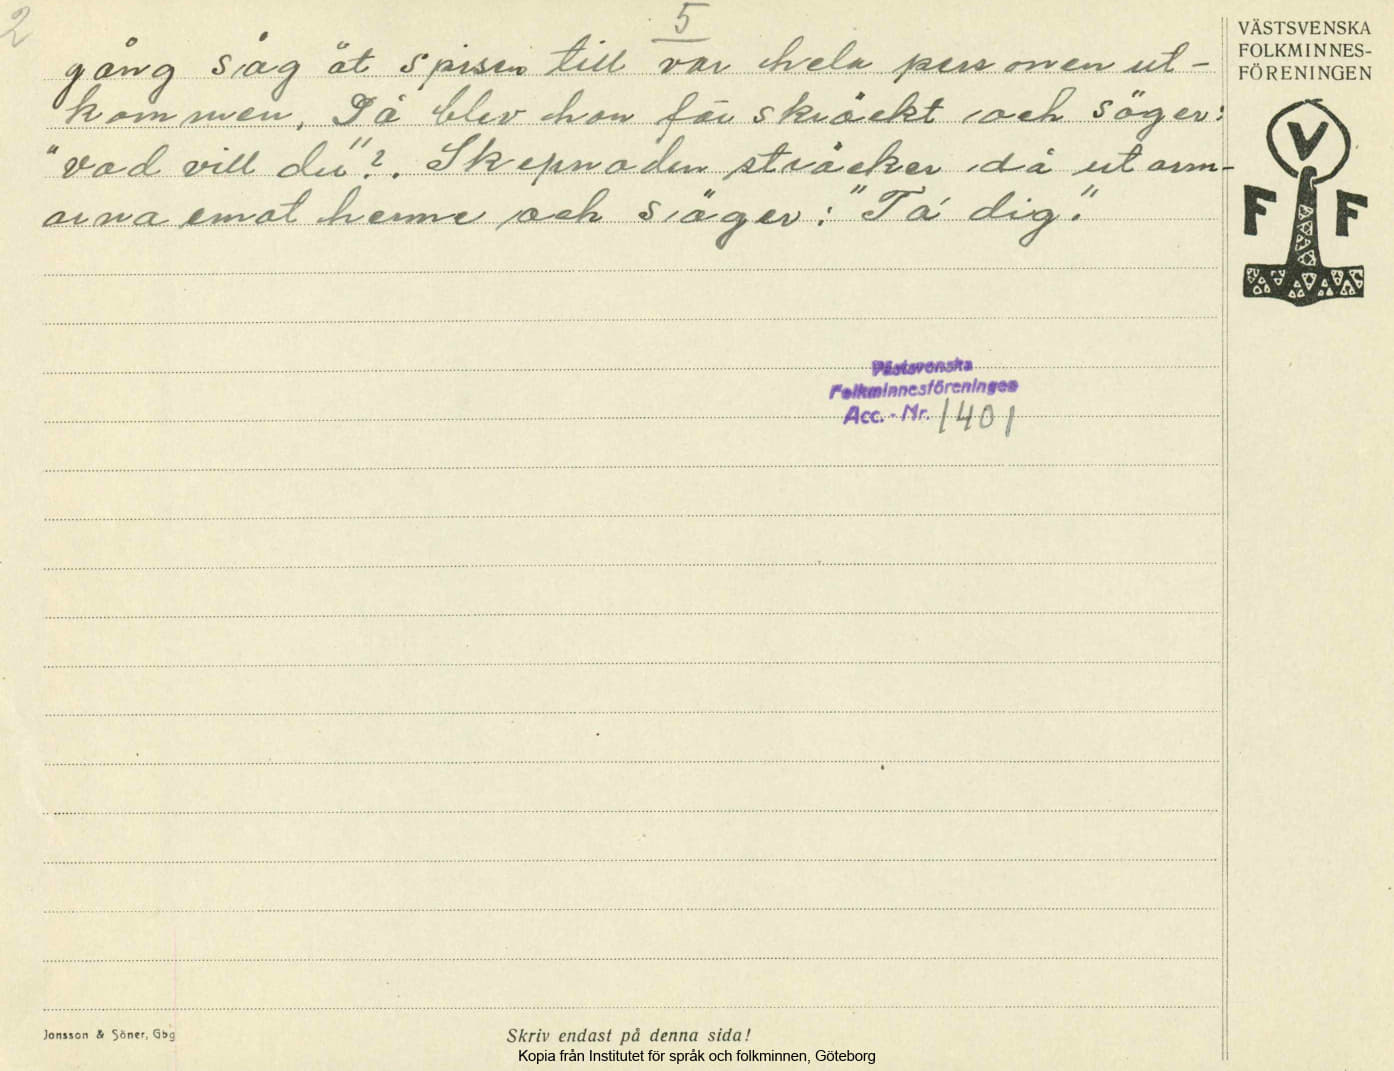 2
5
gång såg åt spisen till var hela personen ut-
kommen. Då blev hon förskräckt och säger:
"vad vill du"?. Skepnaden sträcker då ut arm-
arna emot henne och säger: "Ta dig".
VÄSTSVENSKA
FOLKMINNES-
FÖRENINGEN
V
F F
Västsvenska
Folkminnesföreningen
Acc. - Nr. 1401
Jonsson & Söner, Gbg
Skriv endast på denna sida!
Kopia från Institutet för språk och folkminnen, Göteborg